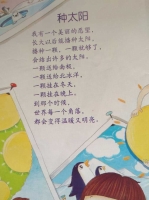 种太阳
我有一个美丽的愿望，
长大以后能播种太阳。
播种一颗，一颗就够了，
会结出许多的太阳。
一颗送给南极，
一颗送给北冰洋，
一颗挂在冬天，
一颗挂在晚上。
到那个时候，
世界每一个角落，
都会变得温暖又明亮。